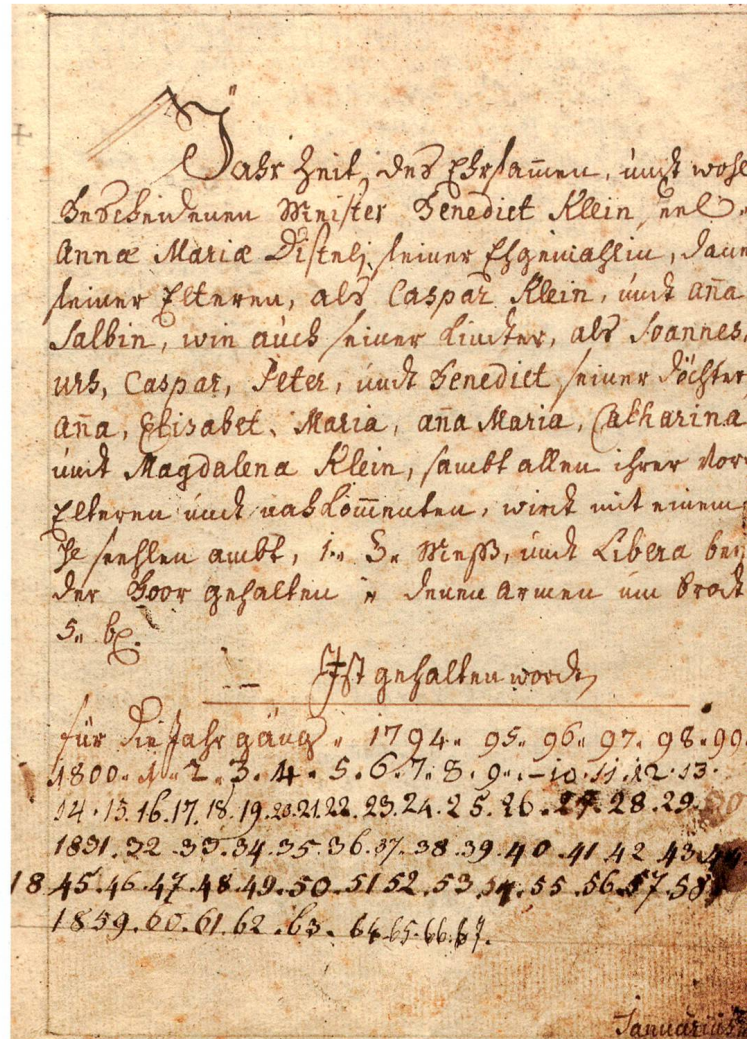 Jahr Zeit, des Ehrsamen, undt wohl
bescheidenen Meister Benedict Klein, und
Annæ Mariæ Distelj seiner Ehgemahlin, dane
seiner Elteren, als Caspar Klein, undt aña
Salbin, wie auch seiner Kindter, als Joannes,
urs, Caspar, Peter, undt Benedict, seiner Döchter,
aña, Elisabet, Maria, aña Maria, Catharina
undt Magdalena Klein, sambt allen ihrer Vor
Elteren undt nahkom̄enten, wirdt mit einem
Seehlen ambt, 1. H. Mess, undt Libera bey
der Boor gehalten denen Armen um brodt
5 bz.
Ist gehalten wordt
für die Jahr gäng 1794. 95. 96. 97. 98. 99.
1800. 1. 2. 3. 4. 5. 6. 7. 8. 9. 10. 11. 12. 13.
14. 15. 16. 17. 18. 19. 20. 21. 22. 23. 24. 25. 26. 27. 28. 29. 30
1831. 32. 33. 34. 35. 36. 37. 38. 39. 40. 41. 42. 43. 44
1845. 46. 47. 48. 49. 50. 51. 52. 53. 54. 55. 56. 57. 58
1859. 60. 61. 62. 63. 64. 65. 66. 67.
Januarius